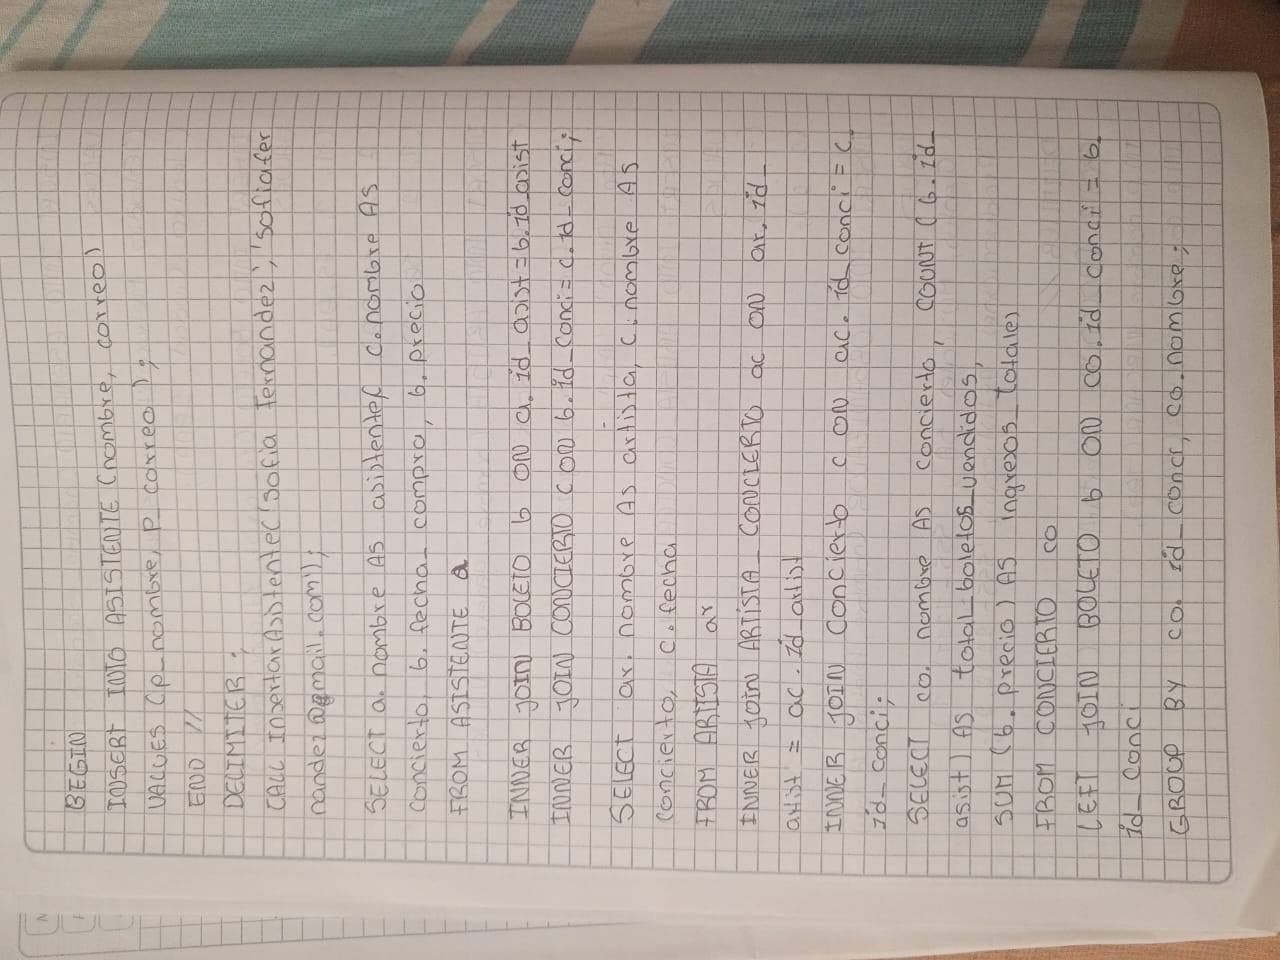 BEGIN
INSERT INTO ASISTENTE (nombre, correo)
VALUES (p_nombre, p_correo);
END //
DELIMITER ;
CALL InsertarAsistente('Sofia Fernandez', 'sofiafer
nandez@gmail.com');
SELECT a.nombre AS asistente, c.nombre AS
concierto, b.fecha_compra, b.precio
FROM ASISTENTE a
INNER JOIN BOLETO b ON a.id_asist = b.id_asist
INNER JOIN CONCIERTO c ON b.id_conci = c.id_conci;
SELECT ar.nombre AS artista, c.nombre AS
concierto, c.fecha
FROM ARTISTA ar
INNER JOIN ARTISTA_CONCIERTO ac ON ar.id_
artist = ac.id_artist
INNER JOIN concierto c ON ac.id_conci = c.
id_conci;
SELECT co.nombre AS concierto, COUNT (b.id_
asist) AS total_boletos_vendidos,
SUM (b.precio) AS ingresos_totales
FROM CONCIERTO co
LEFT JOIN BOLETO b ON co.id_conci = b.
id_conci
GROUP BY co.id_conci, co.nombre;